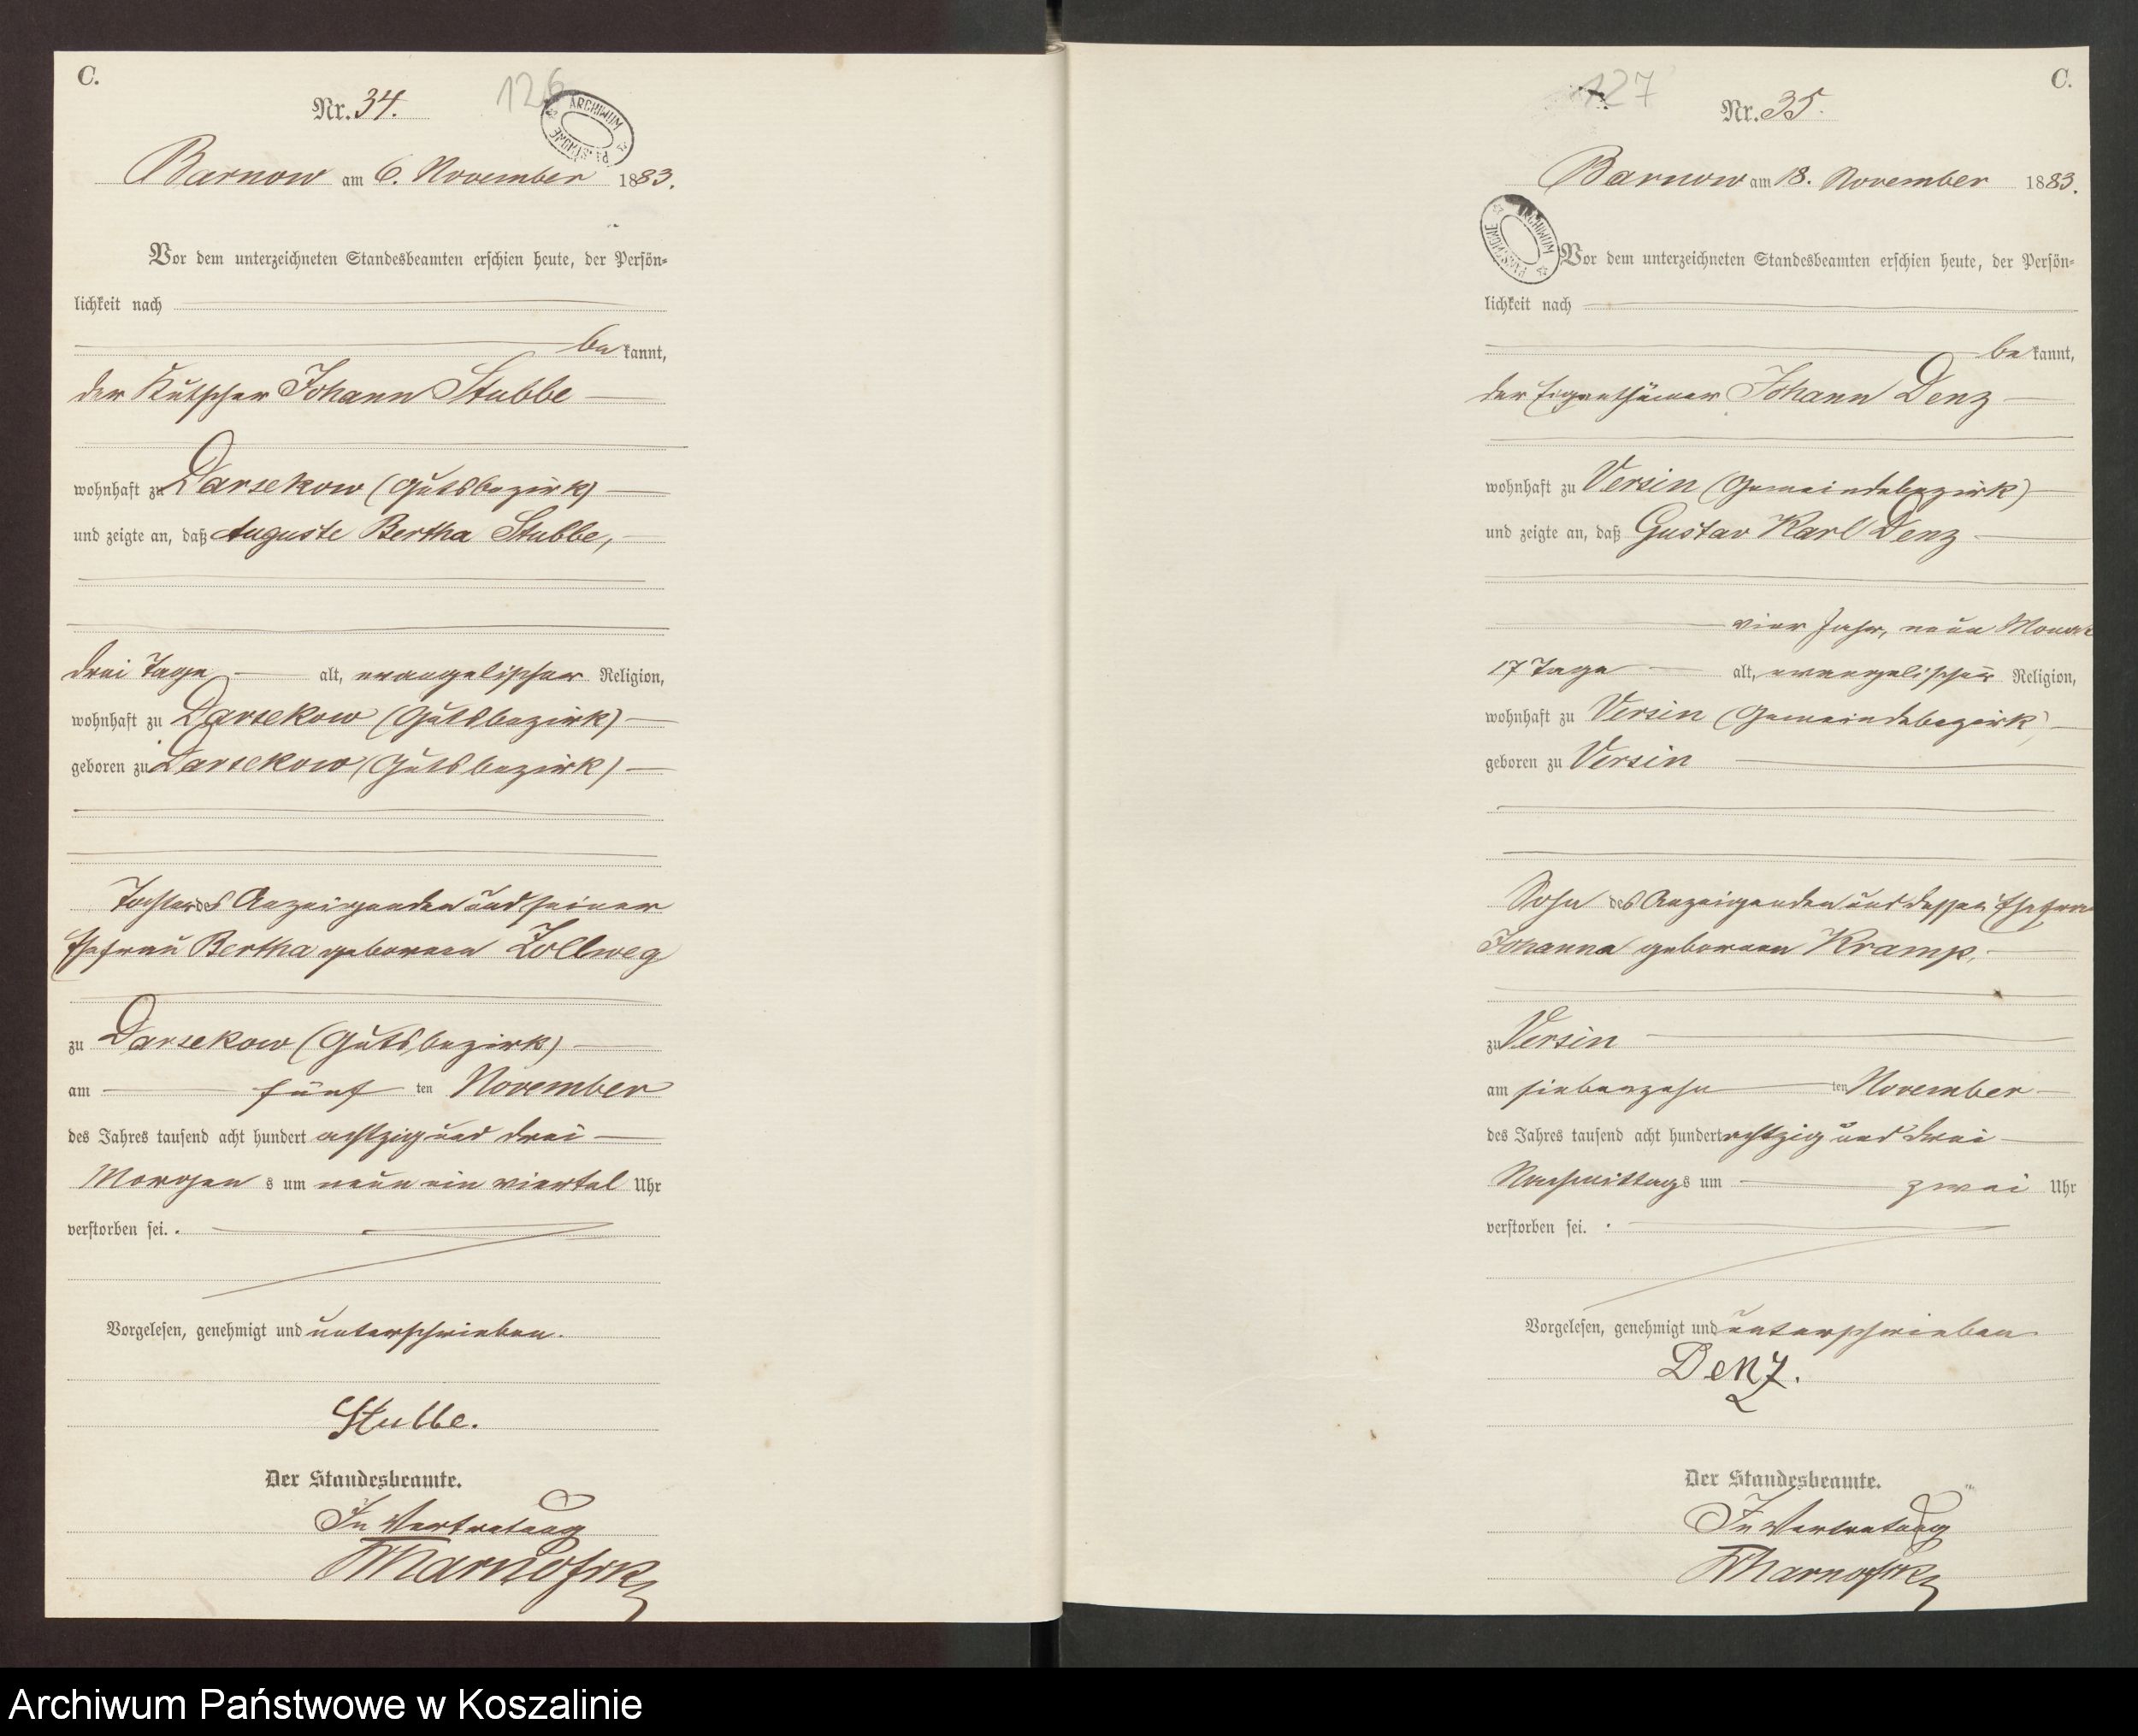 C.
Nr. 34.
126
ARCHIWUM PAŃSTWOWE
Barnow am 6. November 1883.
Vor dem unterzeichneten Standesbeamten erschien heute, der Persön-
lichkeit nach
bekannt,
der Kutscher Johann Stubbe
wohnhaft zu Darsekow (Gutsbezirk)
und zeigte an, daß Auguste Bertha Stubbe,
drei Tage alt, evangelischer Religion,
wohnhaft zu Darsekow (Gutsbezirk)
geboren zu Darsekow (Gutsbezirk)
Tochter des Anzeigenden und seiner
Ehefrau Bertha geborenen Zollweg
zu Darsekow (Gutsbezirk)
am fünf ten November
des Jahres tausend acht hundert achtzig und drei
Morgens um neun ein viertel Uhr
verstorben sei.
Vorgelesen, genehmigt und unterschrieben.
Stubbe.
Der Standesbeamte.
In Vertretung
C.
127
Nr. 35.
Barnow am 18. November 1883.
ARCHIWUM PAŃSTWOWE
Vor dem unterzeichneten Standesbeamten erschien heute, der Persön-
lichkeit nach
bekannt,
der Eigenthümer Johann Denz
wohnhaft zu Versin (Gemeindebezirk)
und zeigte an, daß Gustav Karl Denz
vier Jahr, neun Monat
17 Tage alt, evangelischer Religion,
wohnhaft zu Versin (Gemeindebezirk)
geboren zu Versin
Sohn des Anzeigenden und dessen Ehefrau
Johanna geborenen Kramp,
zu Versin
am siebenzehn ten November
des Jahres tausend acht hundert achtzig und drei
Nachmittags um zwei Uhr
verstorben sei.
Vorgelesen, genehmigt und unterschrieben.
Denz.
Der Standesbeamte.
In Vertretung
Archiwum Państwowe w Koszalinie